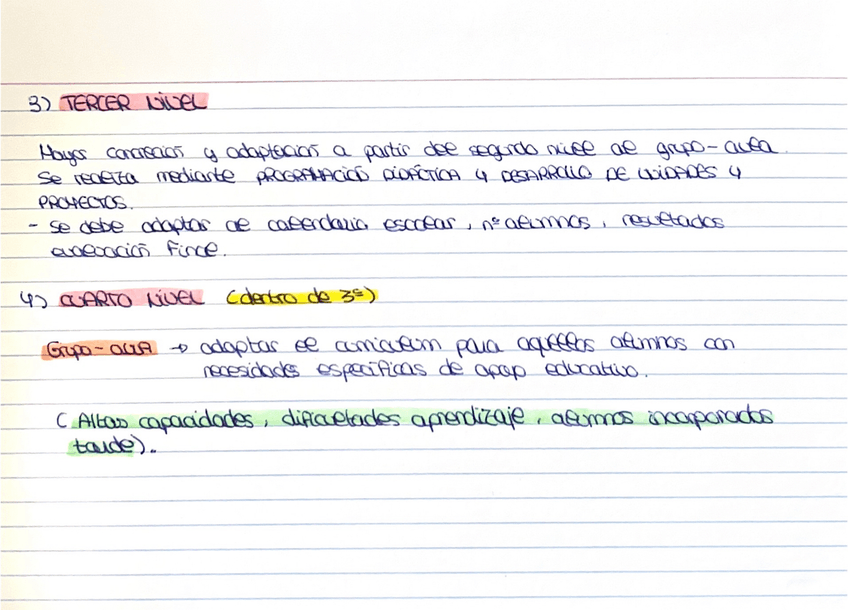 3) TERCER NIVEL
Mayor concreción y adaptación a partir del segundo nivel al grupo-aula.
Se realiza mediante PROGRAMACIÓN DIDÁCTICA Y DESARROLLO DE UNIDADES Y
PROYECTOS.
- Se debe adaptar al calendario escolar, nº alumnos, resultados
evaluación final.
4) CUARTO NIVEL (dentro de 3º)
Grupo-aula → adaptar el curriculum para aquellos alumnos con
necesidades específicas de apoyo educativo.
(Altas capacidades, dificultades aprendizaje, alumnos incorporados
tarde).